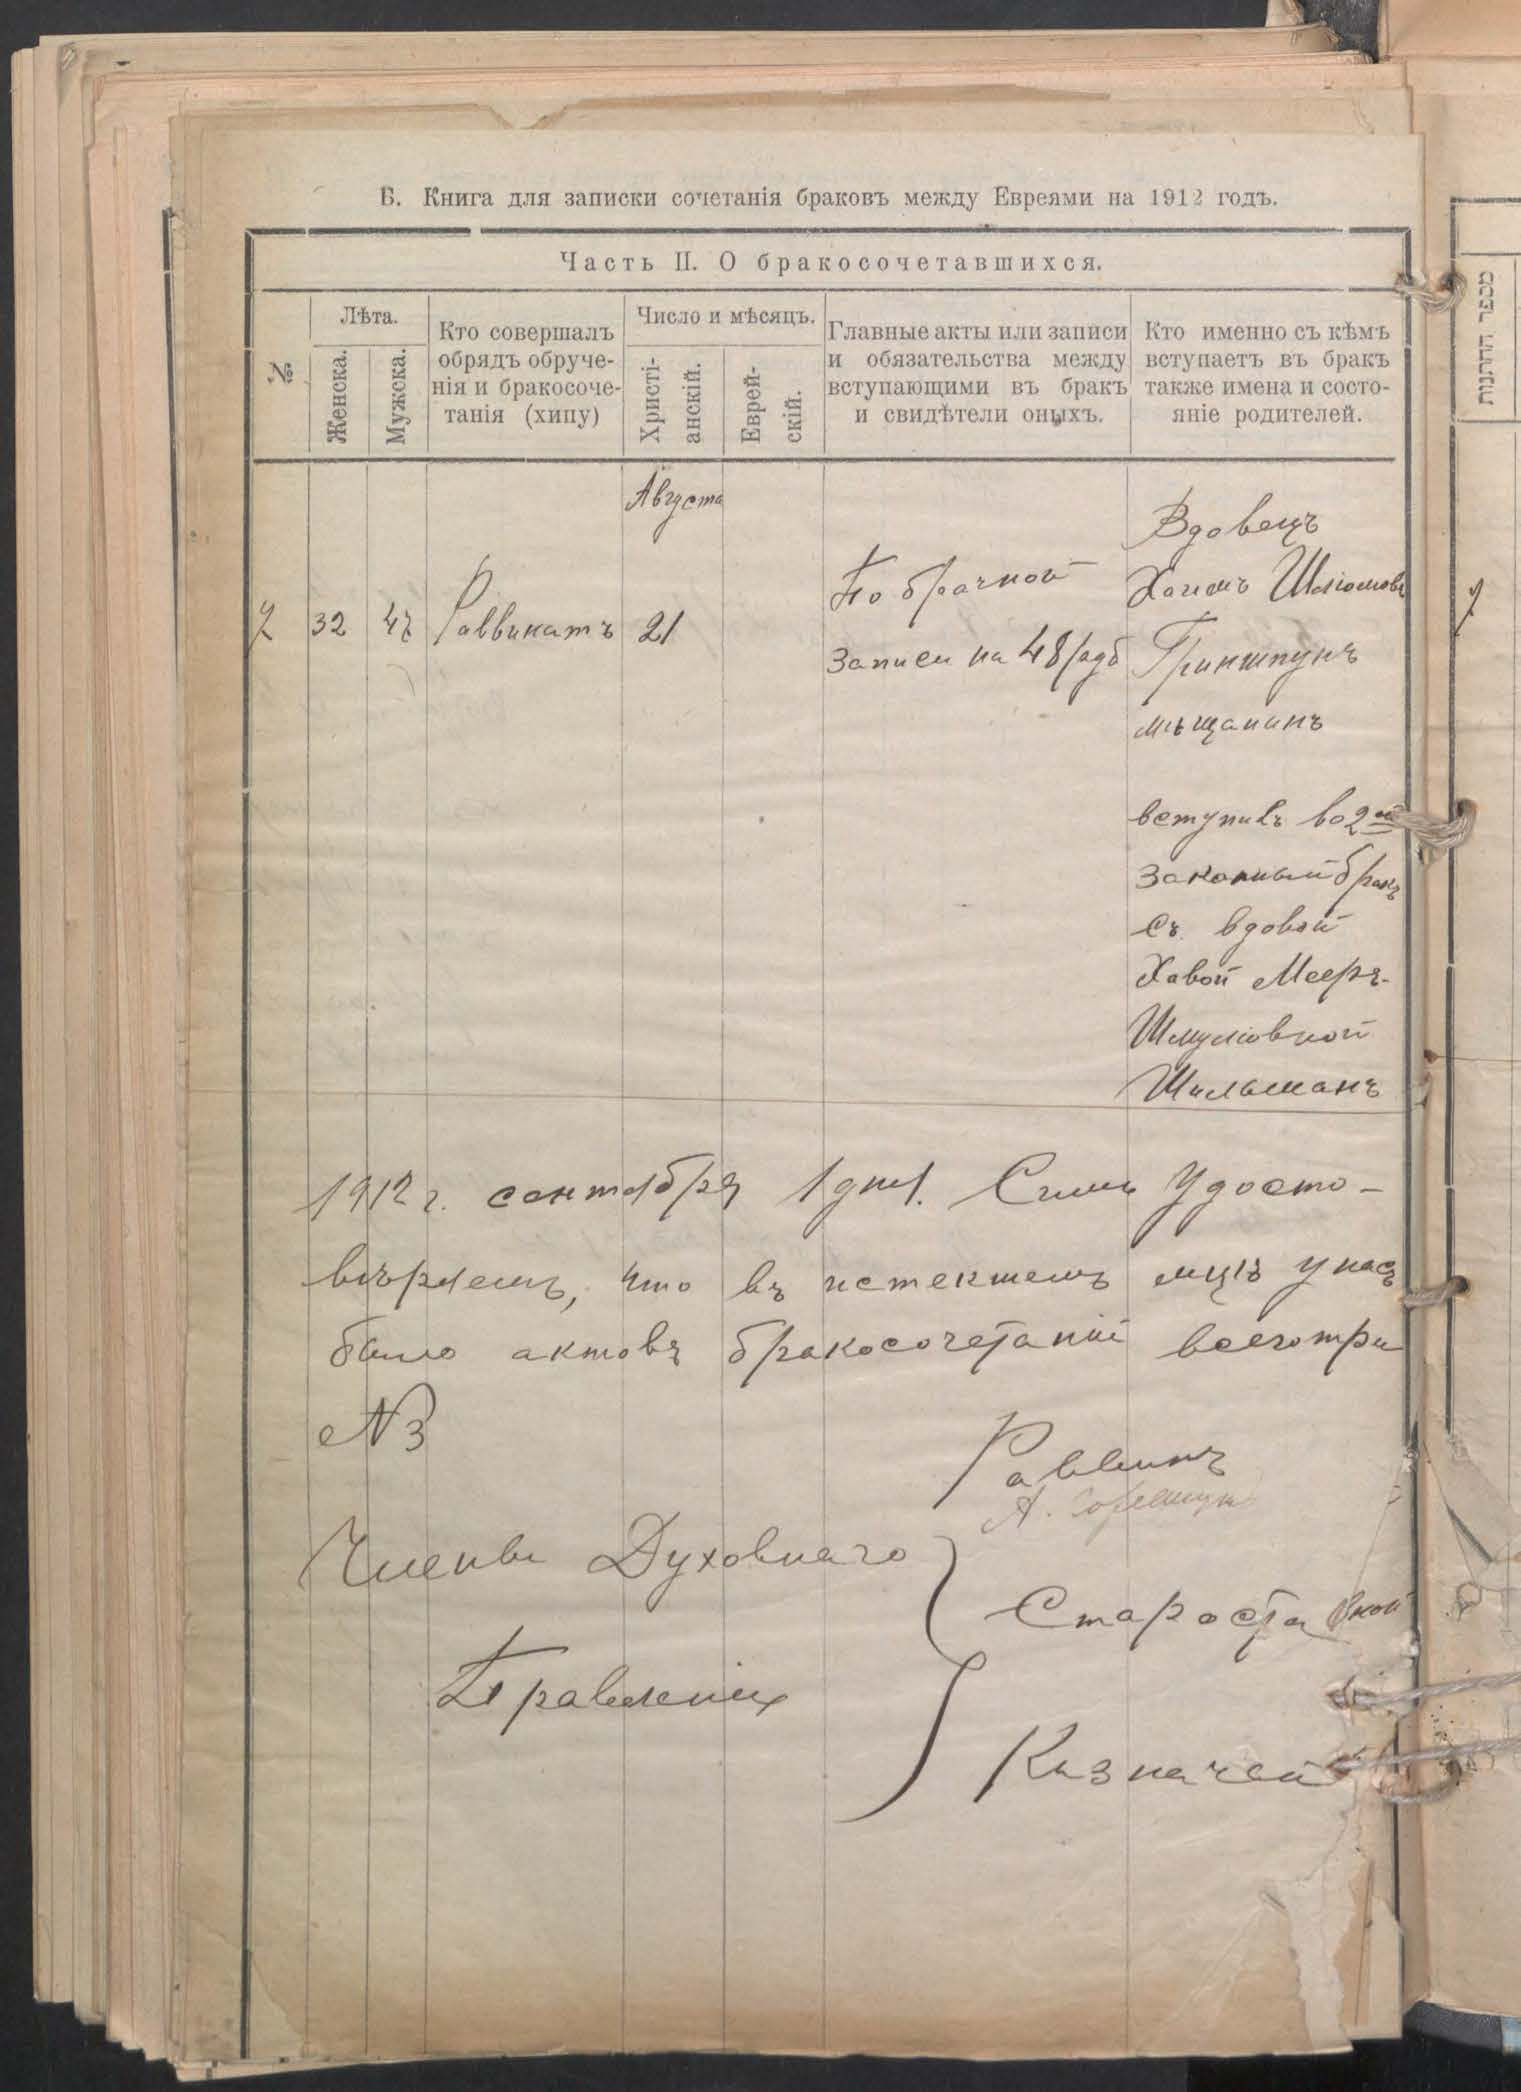 Б. Книга для записки сочетанія браковъ между Евреями на 1912 годъ.
Часть II. О бракосочетавшихся.
№
Лѣта.
Женска.
Мужска.
Кто совершалъ
обрядъ обруче-
нія и бракосоче-
танія (хипу)
Число и мѣсяцъ.
Христі-
анскій.
Еврей-
скій.
Главные акты или записи
и обязательства между
вступающими въ бракъ
и свидѣтели оныхъ.
Кто именно съ кѣмъ
вступаетъ въ бракъ
также имена и состо-
яніе родителей.
מספר החתנות
Августа
7 32 47 Раввинатъ 21
По брачной
записи на 48 руб
Вдовецъ
Хаимъ Шліомовъ
Гриншпунъ
мѣщанинъ
вступилъ во 2й
законный бракъ
съ вдовой
Хавой Мееръ-
Шмулiовной
Шильманъ
7
1912 г. сентября 1 дня. Симъ удосто-
вѣряемъ, что въ истекшемъ мцѣ у насъ
было актовъ бракосочетаній всего три
№ 3
Раввинъ
А.
Члены Духовнаго
Правленія
Староста
Казначей